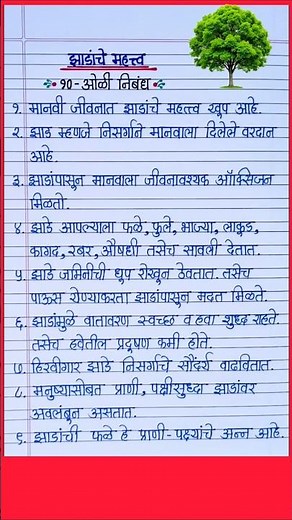 झाडांचे महत्त्व
१०-ओळी निबंध
१. मानवी जीवनात झाडांचे महत्त्व खुप आहे.
२. झाड म्हणजे निसर्गाने मानवाला दिलेले वरदान
आहे.
३. झाडांपासुन मानवाला जीवनावश्यक ऑक्सिजन
मिळतो.
४. झाडे आपल्याला फळे, फुले, भाज्या, लाकुड,
कागद, रबर, औषधी तसेच सावली देतात.
५. झाडे जमिनीची धुप रोखून ठेवतात. तसेच
पाऊस येण्याकरता झाडांपासून मदत मिळते.
६. झाडांमुळे वातावरण स्वच्छ व हवा शुध्द राहते.
तसेच हवेतील प्रदूषण कमी होते.
७. हिरवीगार झाडे निसर्गाचे सौंदर्य वाढवितात.
८. मनुष्यासोबत प्राणी, पक्षीसुध्दा झाडांवर
अवलंबून असतात.
९. झाडांची फळे हे प्राणी-पक्ष्यांचे अन्न आहे.